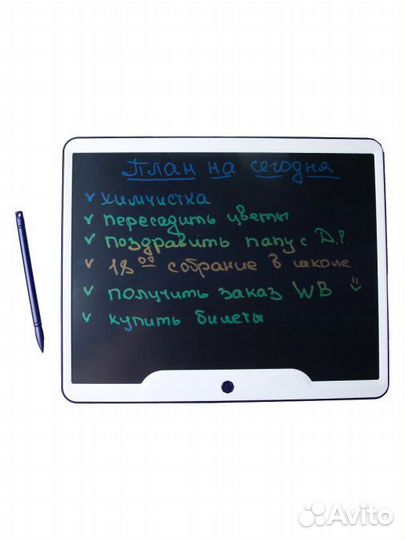 План на сегодня
✓ химчистка
✓ пересадить цветы
✓ поздравить папу с Д.Р.
✓ 18⁰⁰ собрание в школе
✓ получить заказ WB
✓ купить билеты
Avito